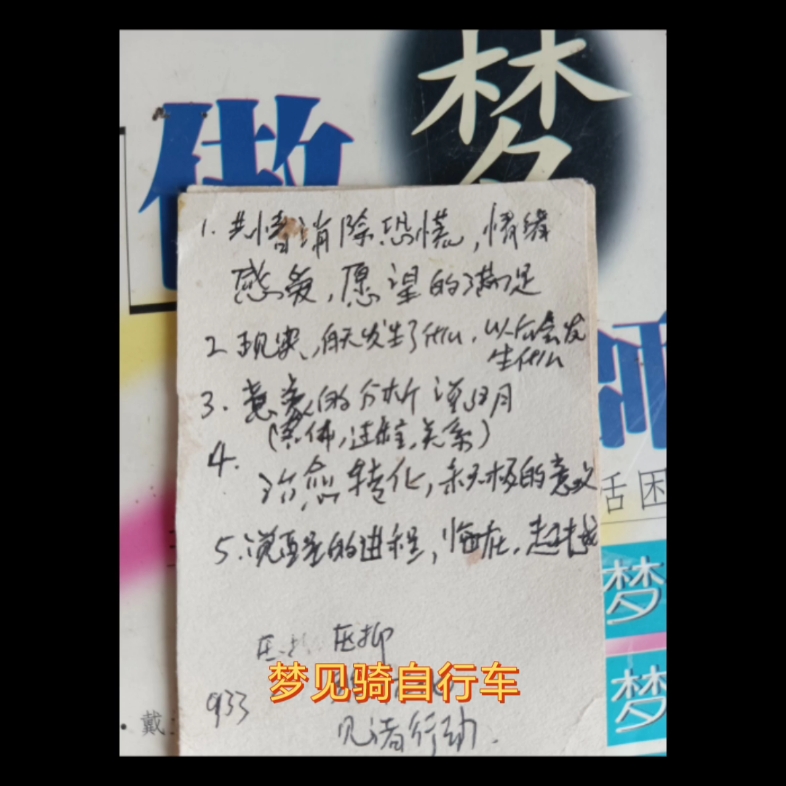 做梦
1. 共情消除恐慌,情绪
感受,愿望的满足
2. 现实,白天发生了什么,以后会发
生什么
3. 意象的分析说明
(具体,过程,关系)
4. 治愈转化,积极的意义
活困
5. 说
的进程,
梦
压抑
梦见骑自行车
梦
933
戴
见诸行动.